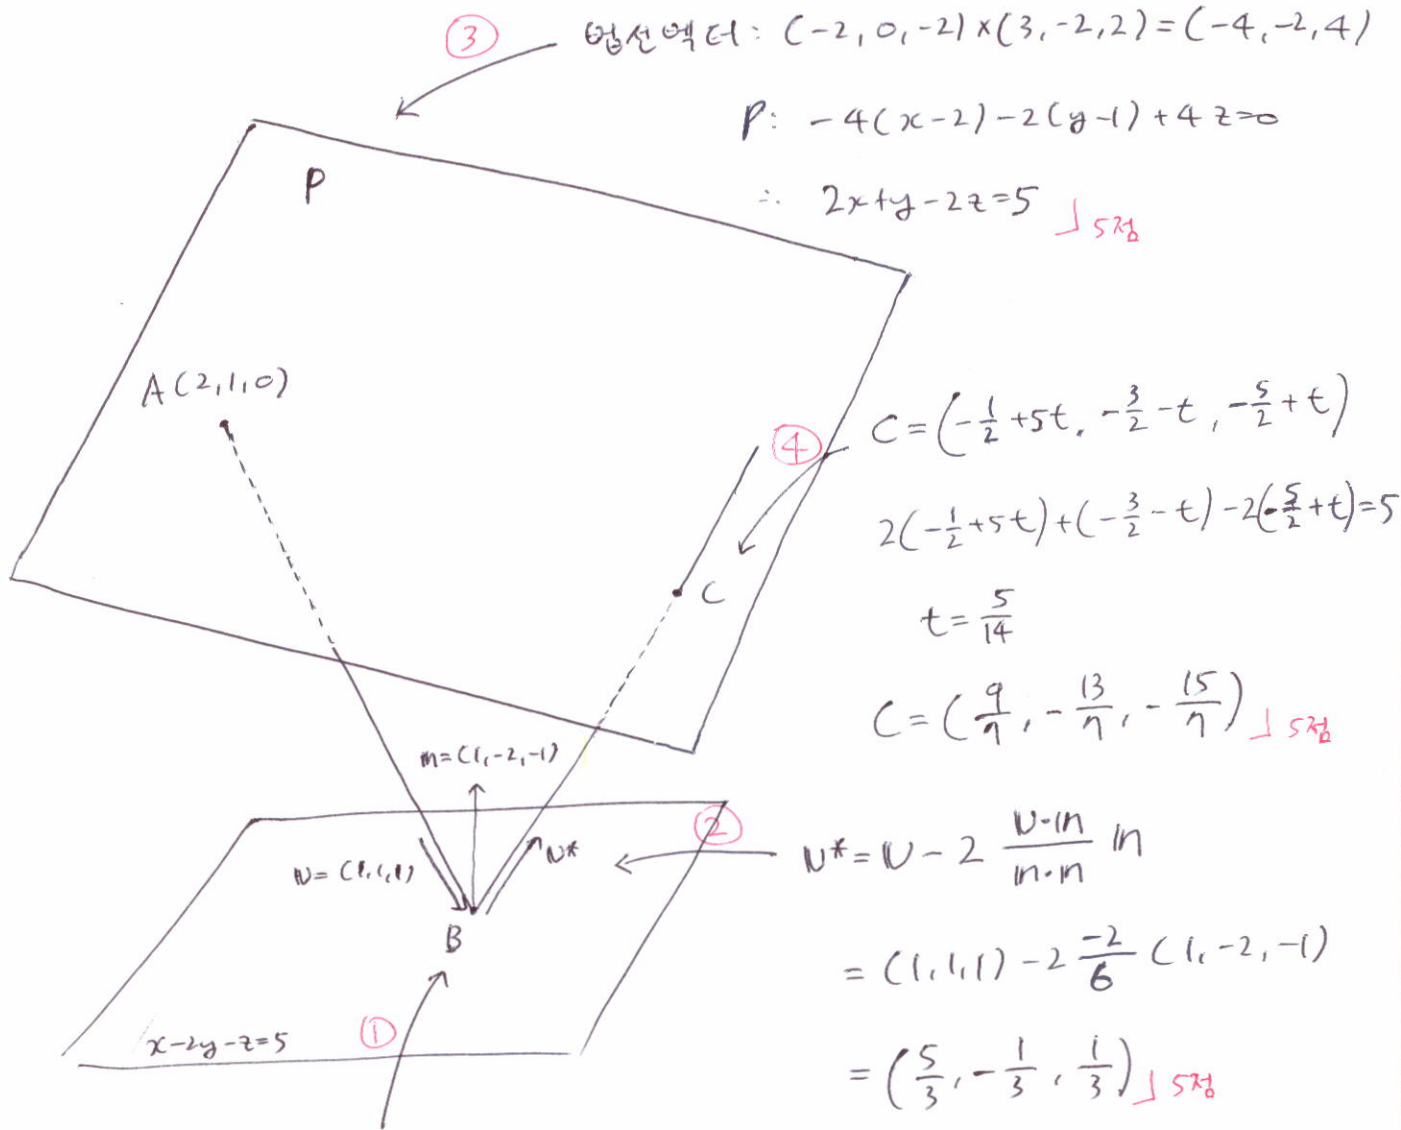 ③ 법선벡터: (-2, 0, -2) × (3, -2, 2) = (-4, -2, 4)
P: -4(x-2) -2(y-1) + 4z=0
∴ 2x+y-2z=5 」5점
P
A(2,1,0)
④ C = (-1/2+5t, -3/2-t, -5/2+t)
2(-1/2+5t)+(-3/2-t)-2(-5/2+t)=5
t = 5/14
C = (9/7, -13/7, -15/7) 」5점
C
n=(1,-2,-1)
v=(1,1,1)
v*
B
② v* = v - 2 (v·n)/(n·n) n
= (1,1,1) - 2 (-2)/6 (1,-2,-1)
= (5/3, -1/3, 1/3) 」5점
x-2y-z=5
①